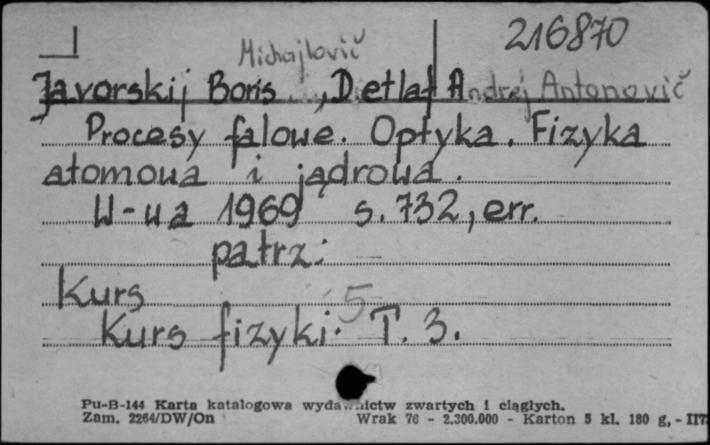 216870
Michajlovič
Javorskij Boris, Detlaf Andrej Antonovič
Procesy falowe. Optyka. Fizyka
atomowa i jądrowa.
W-wa 1969 s. 732, err.
patrz:
Kurs
5
Kurs fizyki. T. 3.
Pu-B-144 Karta katalogowa wydawnictw zwartych i ciągłych.
Zam. 2264/DW/On Wrak 76 - 2.300.000 - Karton 5 kl. 180 g, - III7